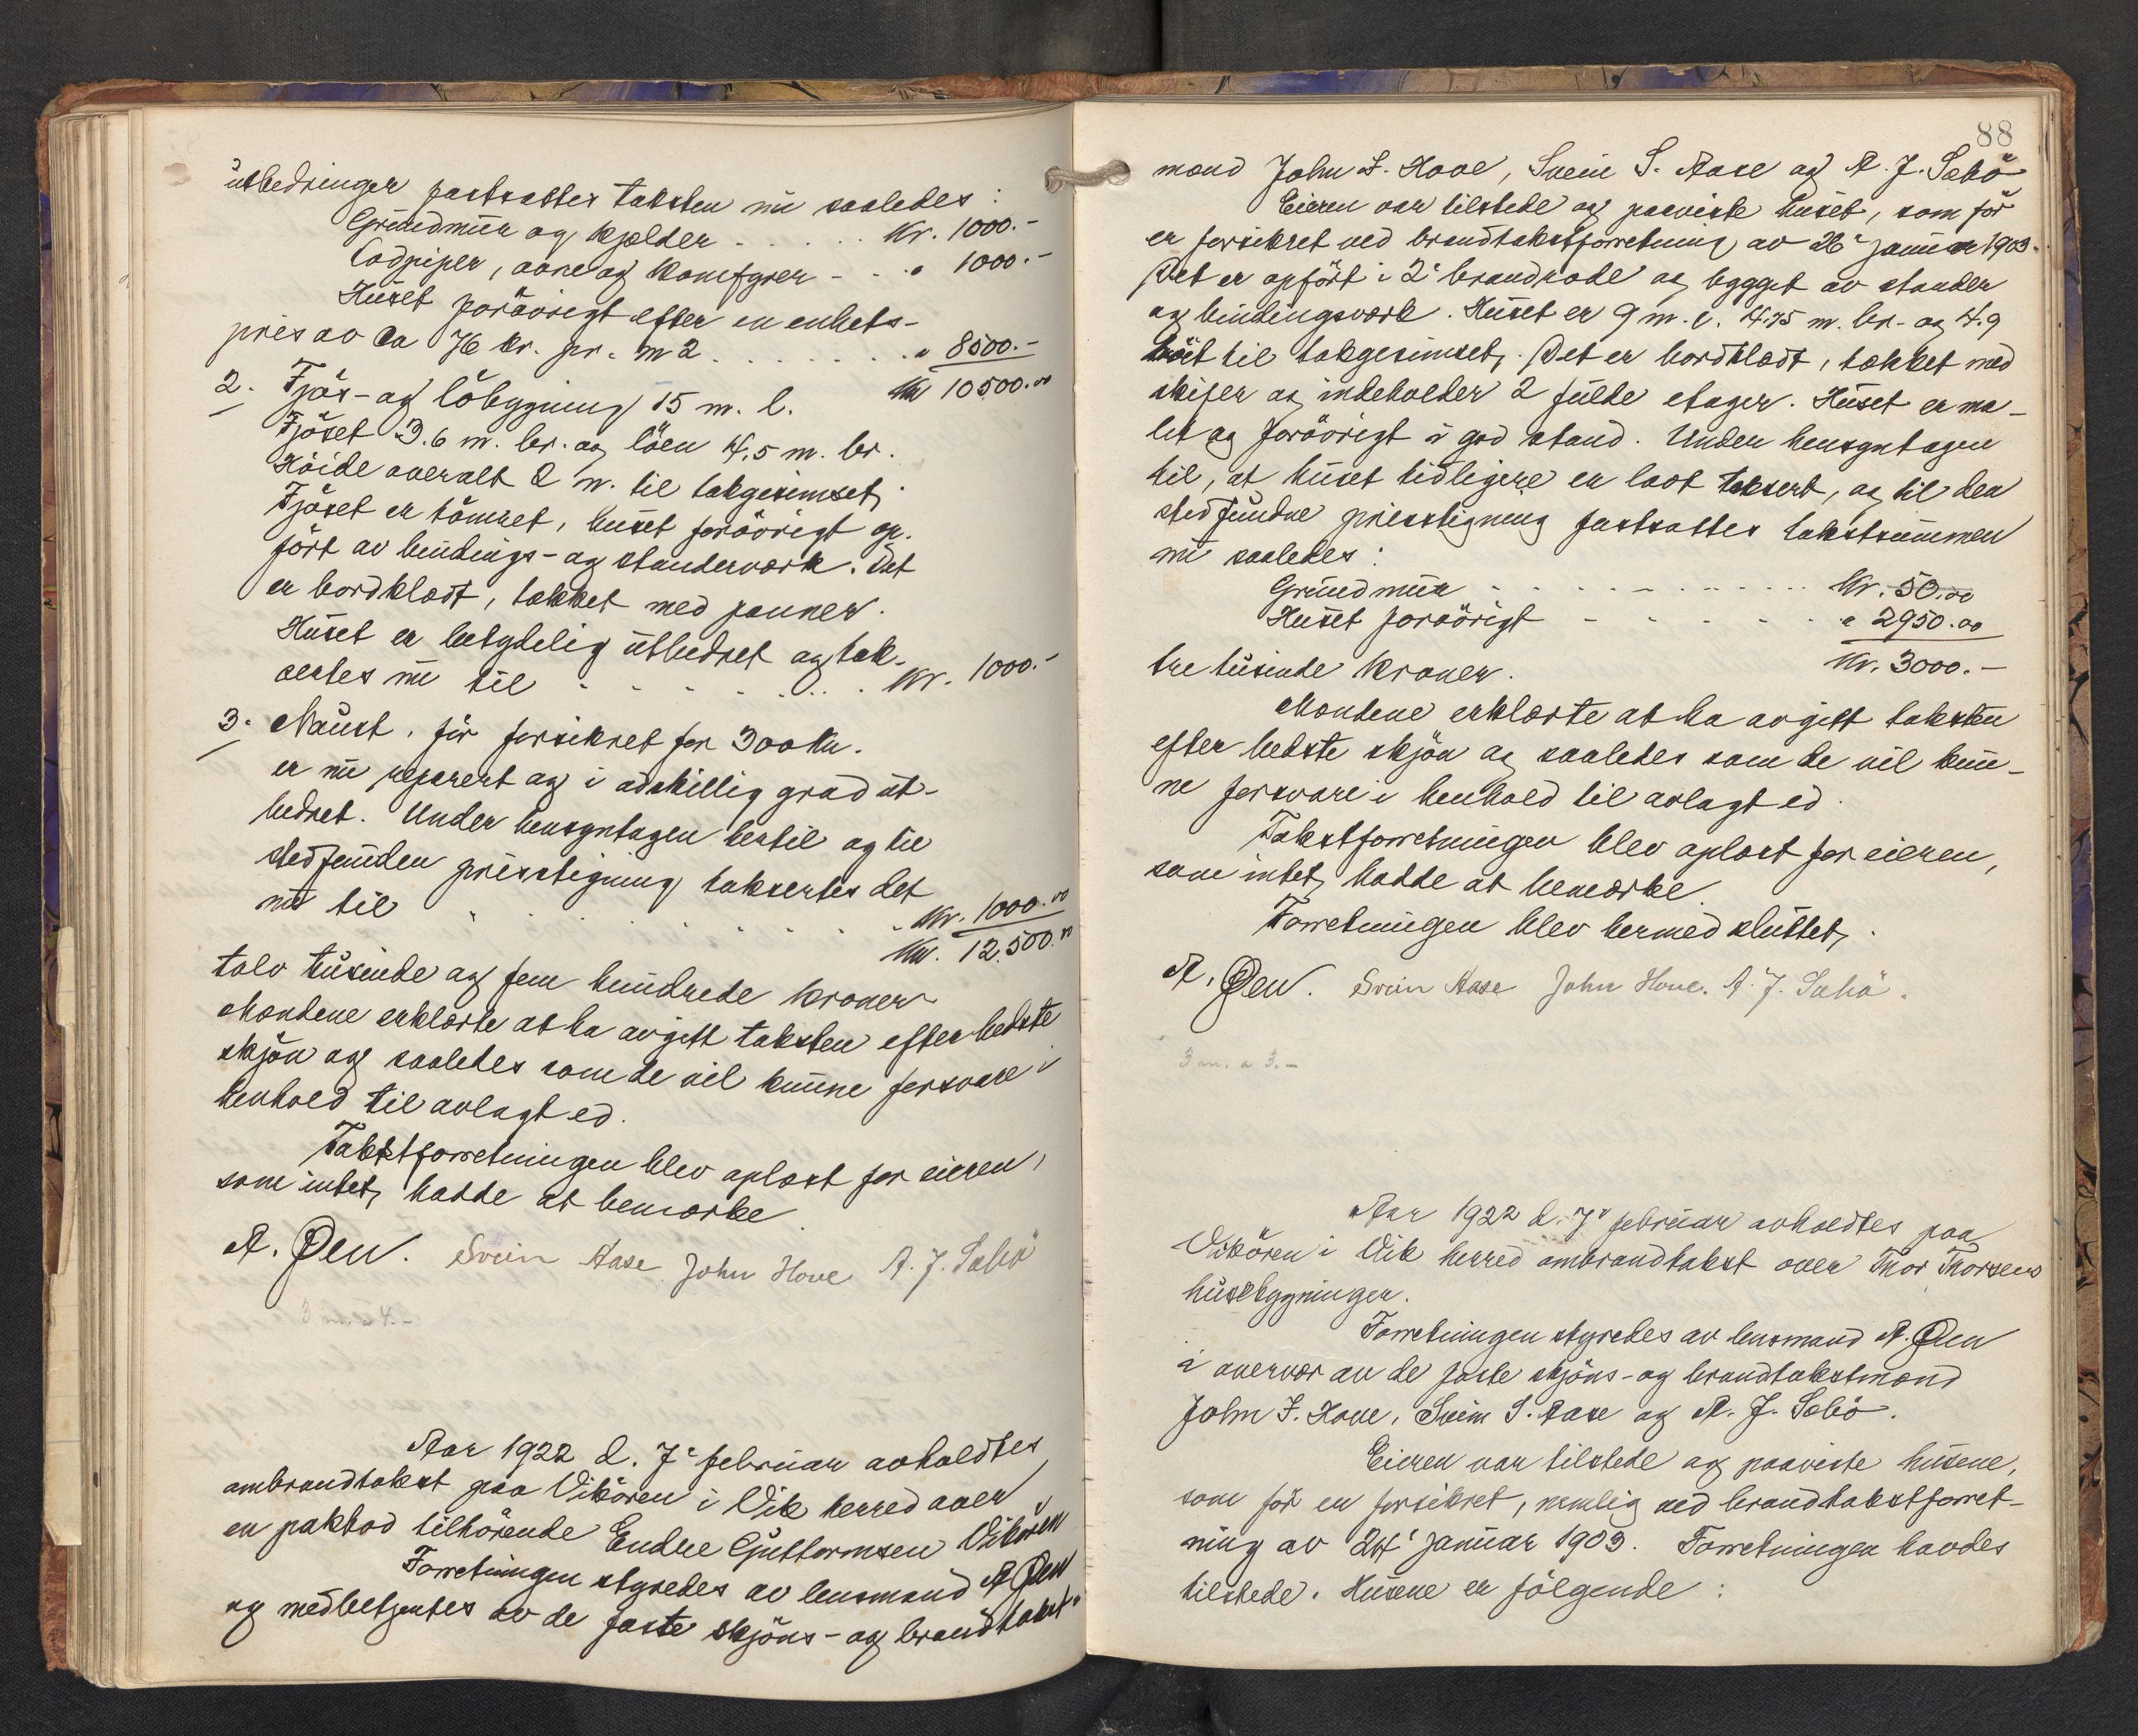 utbedringer fastsattes taksten nu saaledes:
Grundmur og kjælder - - - - - Kr. 1000.-
Ladpiper, aare og komfyrer - - - " 1000.-
Huset forøvrigt efter en enhets-
pris av ca 76 kr. pr. m2 - - - - - - - " 8500.-
Kr 10500.00
2. Fjös- og löbygning 15 m. l.
Fjöset 3.6 m. br. og löen 4,5 m. br.
Höide overalt 2 m. til takgesimset,
Fjöset er tömret, huset forövrigt op-
fört av bindings- og standerværk. Det
er bordklædt, tækket med panner.
Huset er betydelig utbedret og tak-
sertes nu til - - - - - - - Kr. 1000.-
3. Naust, för forsikret for 300 Kr.
er nu reparert og i adskillig grad ut-
bedret. Under hensyntagen hertil og til
stedfunden prisstigning taksertes det
nu til - - - - - - - Kr. 1000.00
Kr. 12.500.00
tolv tusinde og fem hundrede kroner
Mændene erklærte at ha avgitt taksten efter bedste
skjön og saaledes som de vil kunne forsvare i
henhold til avlagt ed.
Takstforretningen blev oplæst for eieren,
som intet, hadde at bemærke.
A. Øen. Svein Aase John Hove A. J. Sæbö
Aar 1922 d. 7' februar avholdtes
ombrandtakst paa Vikören i Vik herred over
en pakbod tilhörende Endre Guttormsen Vikören
Forretningen styredes av lensmand A Øen
og medbetjentes av de faste skjöns- og brandtakst-
88
mænd John I. Hove, Svein S. Aase og A. J. Sæbö
Eieren var tilstede og paaviste huset, som för
er forsikret ved brandtakstforretning av 26' januar 1903.
Det er opfört i 2' brandrode og bygget av stander
og bindingsværk. Huset er 9 m. l. 4.75 m. br. og 4.9
höit til takgesimset. Det er bordklædt, tækket med
skifer og indeholder 2 fulde etager. Huset er ma-
let og forövrigt i god stand. Under hensyntagen
til, at huset tidligere er lavt taksert, og til den
stedfundne prisstigning fastsattes takstsummen
nu saaledes:
Grundmur - - - - - - - - - Kr. 50.00
Huset forövrigt - - - - - - " 2950.00
Kr. 3000.-
tre tusinde kroner.
Mændene erklærte at ha avgitt taksten
efter bedste skjön og saaledes som de vil kun-
ne forsvare i henhold til avlagt ed.
Takstforretningen blev oplæst for eieren,
som intet, hadde at bemærke.
Forretningen blev hermed sluttet.
A. Øen. Svein Aase John Hove. A. J. Sæbö.
3 m. a 3.-
Aar 1922 d. 7' februar avholdtes paa
Vikören i Vik herred ombrandtakst over Thor Thorsens
husebygninger.
Forretningen styredes av lensmand A. Øen
i overvær av de faste skjöns- og brandtakstmænd
John I. Hove, Svein S. Aase og A. J. Sæbö.
Eieren var tilstede og paaviste husene,
som för er forsikret, nemlig ved brandtakstforret-
ning av 24' januar 1903. Forretningen havdes
tilstede. Husene er fölgende: